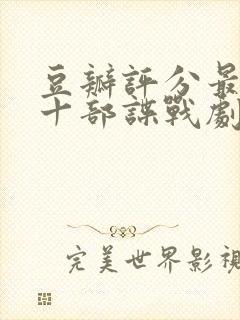 豆瓣評分最
十部諜戰劇
完美世界影視